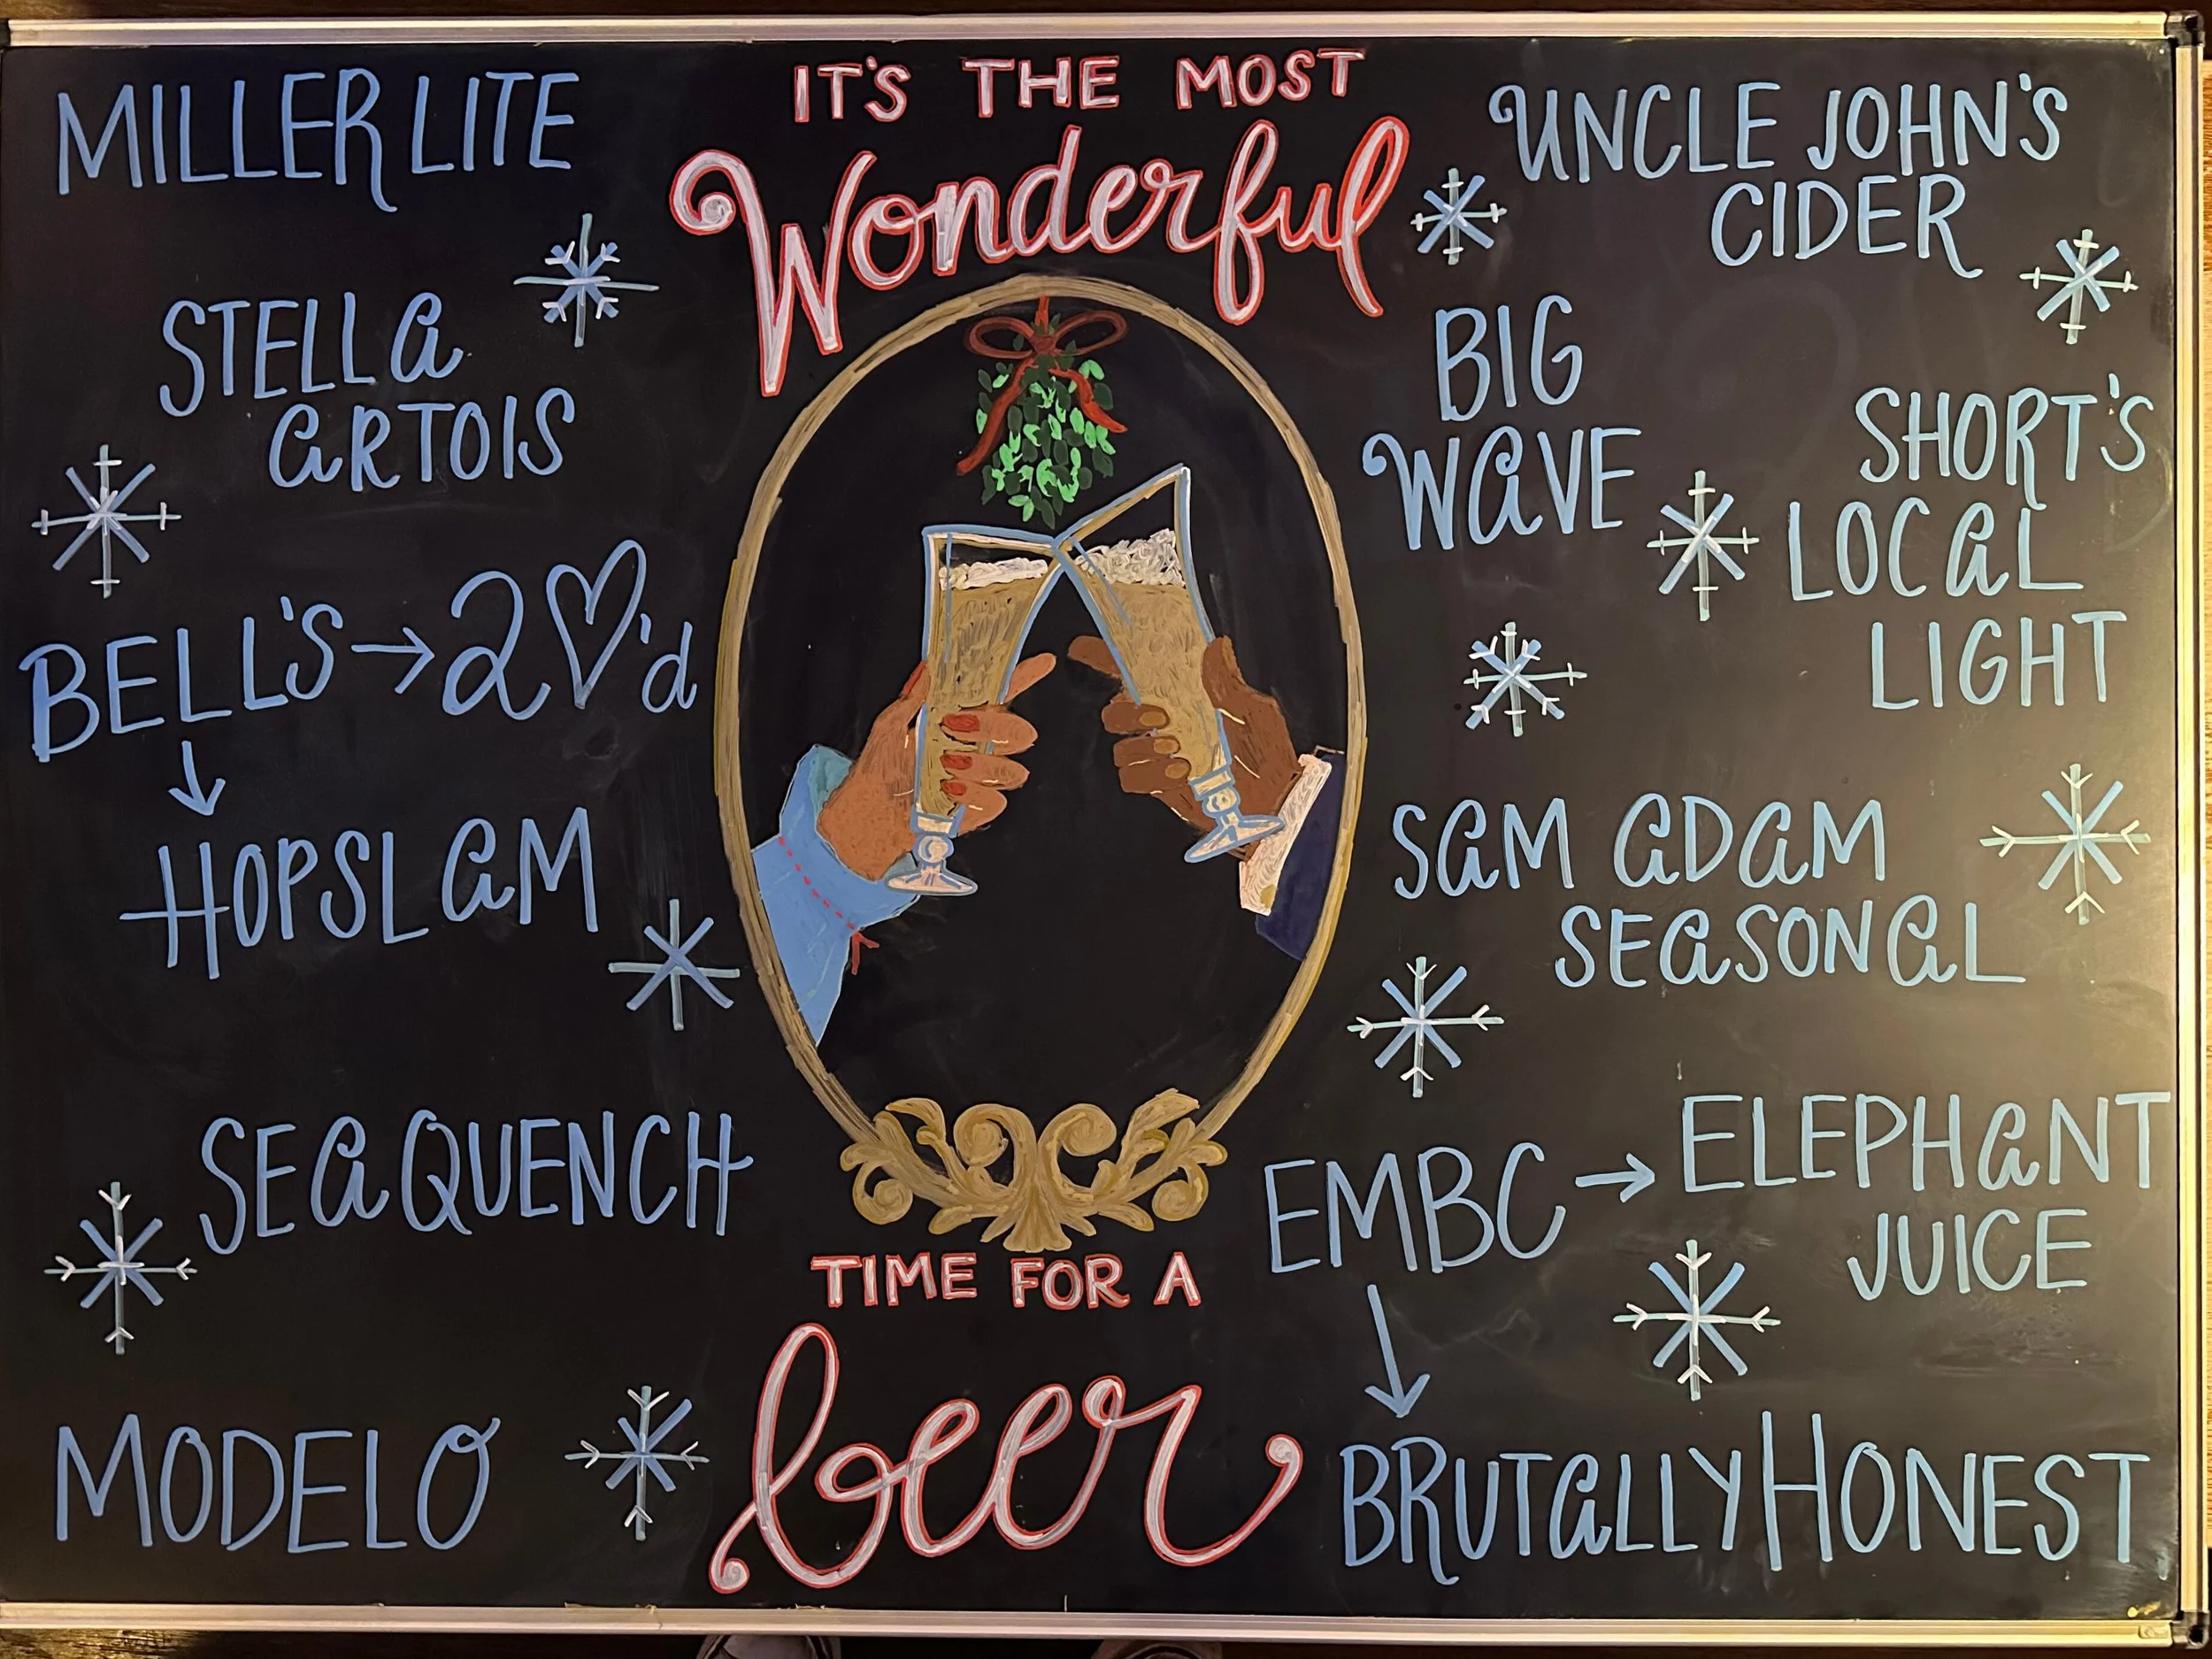 IT'S THE MOST
Wonderful
TIME FOR A
beer
MILLER LITE
STELLA
ARTOIS
BELL'S → 2♡'d
↓
HOPSLAM
SEAQUENCH
MODELO
UNCLE JOHN'S
CIDER
BIG
WAVE
SHORT'S
LOCAL
LIGHT
SAM ADAM
SEASONAL
EMBC → ELEPHANT
JUICE
↓
BRUTALLY HONEST